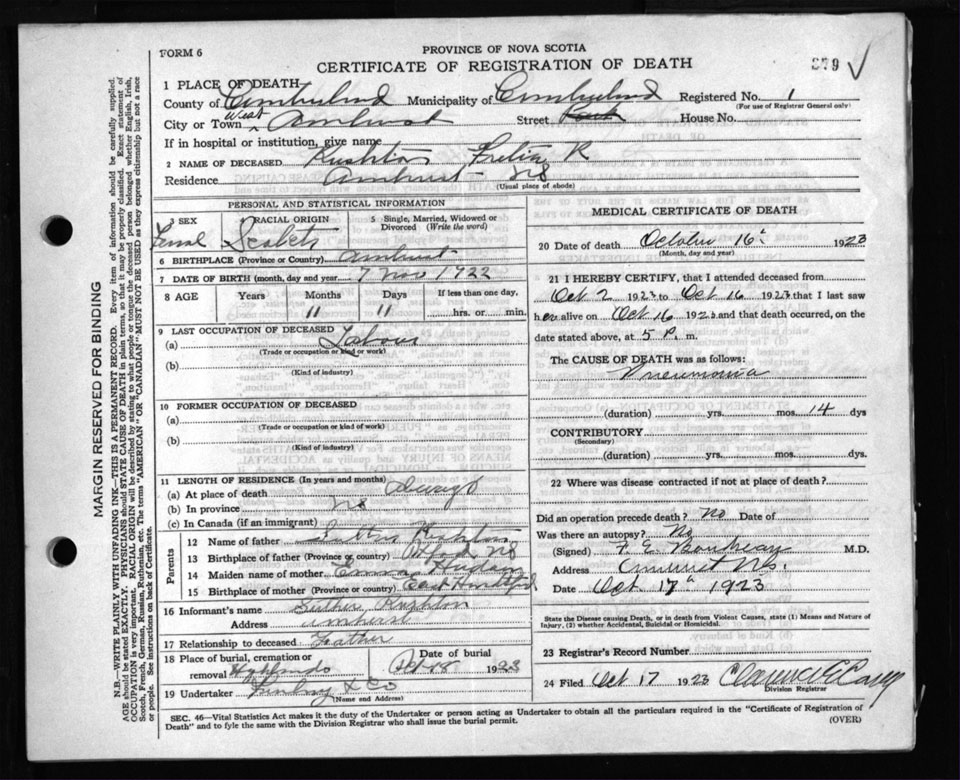 FORM 6
PROVINCE OF NOVA SCOTIA
CERTIFICATE OF REGISTRATION OF DEATH
379 ✓
1 PLACE OF DEATH
County of Cumberland Municipality of Cumberland Registered No. 1
(For use of Registrar General only)
City or Town West Amherst Street House No.
If in hospital or institution, give name
2 NAME OF DECEASED Rushton R
Residence Amherst NS
(Usual place of abode)
PERSONAL AND STATISTICAL INFORMATION
3 SEX RACIAL ORIGIN 5 Single, Married, Widowed or Divorced (Write the word)
Femal Scotch
6 BIRTHPLACE (Province or Country) Amherst
7 DATE OF BIRTH (month, day and year) 7 Nov 1922
8 AGE Years Months Days If less than one day,
11 11 hrs. or min.
9 LAST OCCUPATION OF DECEASED
(a)
(Trade or occupation or kind of work)
(b)
(Kind of industry)
10 FORMER OCCUPATION OF DECEASED
(a)
(Trade or occupation or kind of work)
(b)
(Kind of industry)
11 LENGTH OF RESIDENCE (In years and months)
(a) At place of death
(b) In province NS
(c) In Canada (if an immigrant)
Parents
12 Name of father Rushton
13 Birthplace of father (Province or country) Oxford NS
14 Maiden name of mother Emma
15 Birthplace of mother (Province or country) East
16 Informant's name Rushton
Address Amherst
17 Relationship to deceased Father
18 Place of burial, cremation or Date of burial
removal Highlands Oct 18 1923
19 Undertaker & Co
(Name and Address)
MEDICAL CERTIFICATE OF DEATH
20 Date of death October 16th 1923
(Month, day and year)
21 I HEREBY CERTIFY, that I attended deceased from
Oct 2 1923 to Oct 16 1923 that I last saw
her alive on Oct 16 1923 and that death occurred, on the
date stated above, at 5 P. m.
The CAUSE OF DEATH was as follows:
Pneumonia
(duration) yrs. mos. 14 dys
CONTRIBUTORY
(Secondary)
(duration) yrs. mos. dys.
22 Where was disease contracted if not at place of death?
Did an operation precede death? No Date of
Was there an autopsy? No
(Signed) F. E. M.D.
Address Amherst N.S.
Date Oct 17th 1923
State the Disease causing Death, or in death from Violent Causes, state (1) Means and Nature of Injury, (2) whether Accidental, Suicidal or Homicidal.
23 Registrar's Record Number
24 Filed Oct 17 1923 Clarence
Division Registrar
SEC. 46—Vital Statistics Act makes it the duty of the Undertaker or person acting as Undertaker to obtain all the particulars required in the "Certificate of Registration of
Death" and to fyle the same with the Division Registrar who shall issue the burial permit.
(OVER)
MARGIN RESERVED FOR BINDING
N.B.—WRITE PLAINLY WITH UNFADING INK—THIS IS A PERMANENT RECORD. Every item of information should be carefully supplied.
AGE should be stated EXACTLY. PHYSICIANS should STATE CAUSE OF DEATH in plain terms, so that it may be properly classified. Exact statement of
OCCUPATION is very important. RACIAL ORIGIN will be described by stating to what people or tongue the deceased person belonged whether English, Irish,
Scotch, French, German, Russian, Ruthenian, etc. The terms "AMERICAN" OR "CANADIAN" MUST NOT BE USED as they express citizenship but not a race
or people. See instructions on back of Certificate.